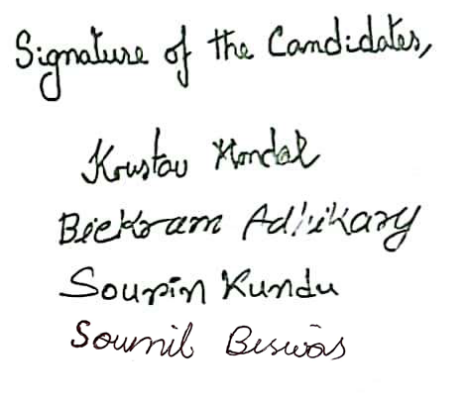 Signature of the Candidates,
Koustav Mondal
Bickram Adhikary
Sourin Kundu
Soumil Biswas